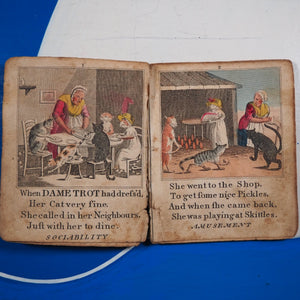 When DAME TROT had dreſs'd,
Her Cat very fine.
She called in her Neighbours,
Juſt with her to dine.
SOCIABILITY
She went to the Shop.
To get ſome nice Pickles,
And when ſhe came back,
She was playing at Skittles.
AMUSEMENT